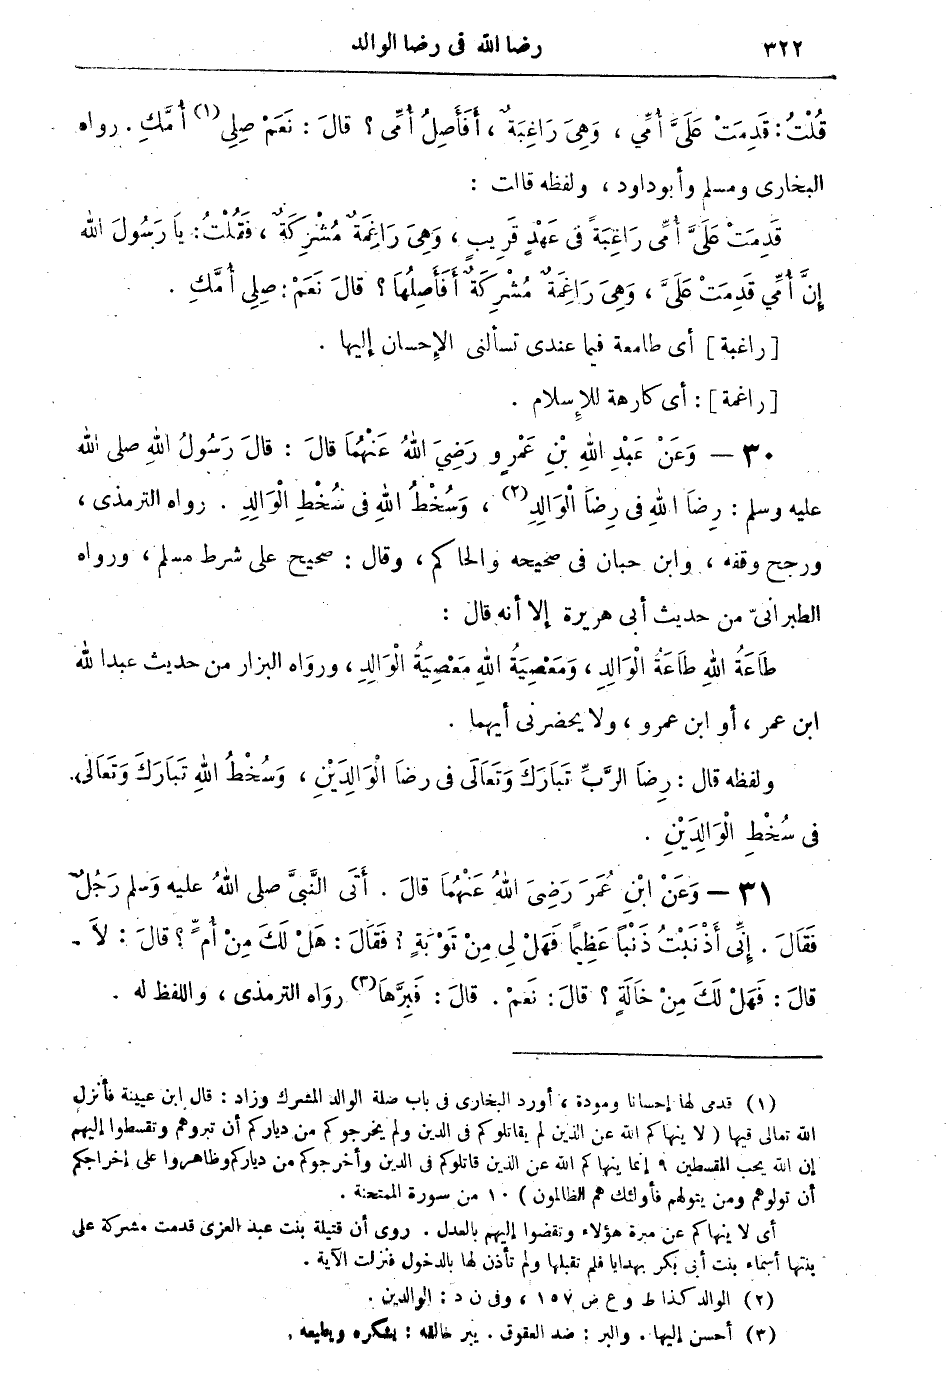 ٣٢٢ رضا الله فى رضا الوالد
قُلْتُ: قَدِمَتْ عَلَىَّ أُمِّي ، وَهِىَ رَاغِبَةٌ ، أَفَأَصِلُ أُمِّى ؟ قالَ : نَعَمْ صِلِى (١) أُمَّكِ . رواه
البخارى ومسلم وأبوداود ، ولفظه قالت :
قَدِمَتْ عَلَىَّ أُمِّى رَاغِبَةً فى عَهْدِ قَرِيبٍ ، وَهِىَ رَاغِمَةٌ مُشْرِكَةٌ ، فَقُلْتُ : يَا رَسُولَ الله
إِنَّ أُمِّي قَدِمَتْ عَلَىَّ ، وَهِىَ رَاغِمَةٌ مُشْرِكَةٌ أَفَأَصِلُهَا ؟ قالَ نَعَمْ : صِلِى أُمَّكِ .
[راغبة] أى طامعة فيما عندى تسألنى الإحسان إليها .
[راغمة] : أى كارهة للإسلام .
٣٠ — وَعَنْ عَبْدِ اللهِ بْنِ عَمْرٍو رَضِيَ اللهُ عَنْهُمَا قالَ : قالَ رَسُولُ اللهِ صلى الله
عليه وسلم : رِضَا اللهِ فى رِضَا الْوَالِدِ (٢) ، وَسُخْطُ اللهِ فى سُخْطِ الْوَالِدِ . رواه الترمذى ،
ورجح وقفه ، وابن حبان فى صحيحه والحاكم ، وقال : صحيح على شرط مسلم ، ورواه
الطبرانىّ من حديث أبى هريرة إلا أنه قال :
طَاعَةُ اللهِ طَاعَةُ الْوَالِدِ ، وَمَعْصِيَةُ اللهِ مَعْصِيَةُ الْوَالِدِ ، ورواه البزار من حديث عبدالله
ابن عمر ، أو ابن عمرو ، ولا يحضرنى أيهما .
ولفظه قال : رِضَا الرَّبِّ تَبَارَكَ وَتَعَالَى فى رِضَا الْوَالِدَيْنِ ، وَسُخْطُ اللهِ تَبَارَكَ وَتَعَالَى
فى سُخْطِ الْوَالِدَيْنِ .
٣١ — وَعَنْ ابْنِ عُمَرَ رَضِىَ اللهُ عَنْهُمَا قالَ . أَتَى النَّبِىَّ صلى اللهُ عليه وَسلم رَجُلٌ
فَقَالَ . إِنِّى أَذْنَبْتُ ذَنْبًا عَظِيمًا فَهَلْ لِى مِنْ تَوْبَةٍ ؟ فَقَالَ : هَلْ لَكَ مِنْ أُمٍّ ؟ قالَ : لاَ .
قالَ : فَهَلْ لَكَ مِنْ خَالَةٍ ؟ قالَ : نَعَمْ . قالَ : فَبِرَّهَا (٣) رواه الترمذى ، واللفظ له .
(١) قدمى لها إحسانا ومودة ، أورد البخارى فى باب صلة الوالد المشرك وزاد : قال ابن عيينة فأنزل
الله تعالى فيها ( لا ينهاكم الله عن الذين لم يقاتلوكم فى الدين ولم يخرجوكم من دياركم أن تبروهم وتقسطوا إليهم
إن الله يحب المقسطين ٩ إنما ينهاكم الله عن الذين قاتلوكم فى الدين وأخرجوكم من دياركم وظاهروا على إخراجكم
أن تولوهم ومن يتولهم فأولئك هم الظالمون ) ١٠ من سورة الممتحنة .
أى لا ينهاكم عن مبرة هؤلاء وتفضوا إليهم بالعدل . روى أن قتيلة بنت عبد العزى قدمت مشركة على
بنتها أسماء بنت أبى بكر بهدايا فلم تقبلها ولم تأذن لها بالدخول فنزلت الآية .
(٢) الوالد كذا ط و ع ص ١٥٧ ، وفى ن د : الوالدين .
(٣) أحسن إليها . والبر : ضد العقوق . يبر خالقه : يشكره ويطيعه .